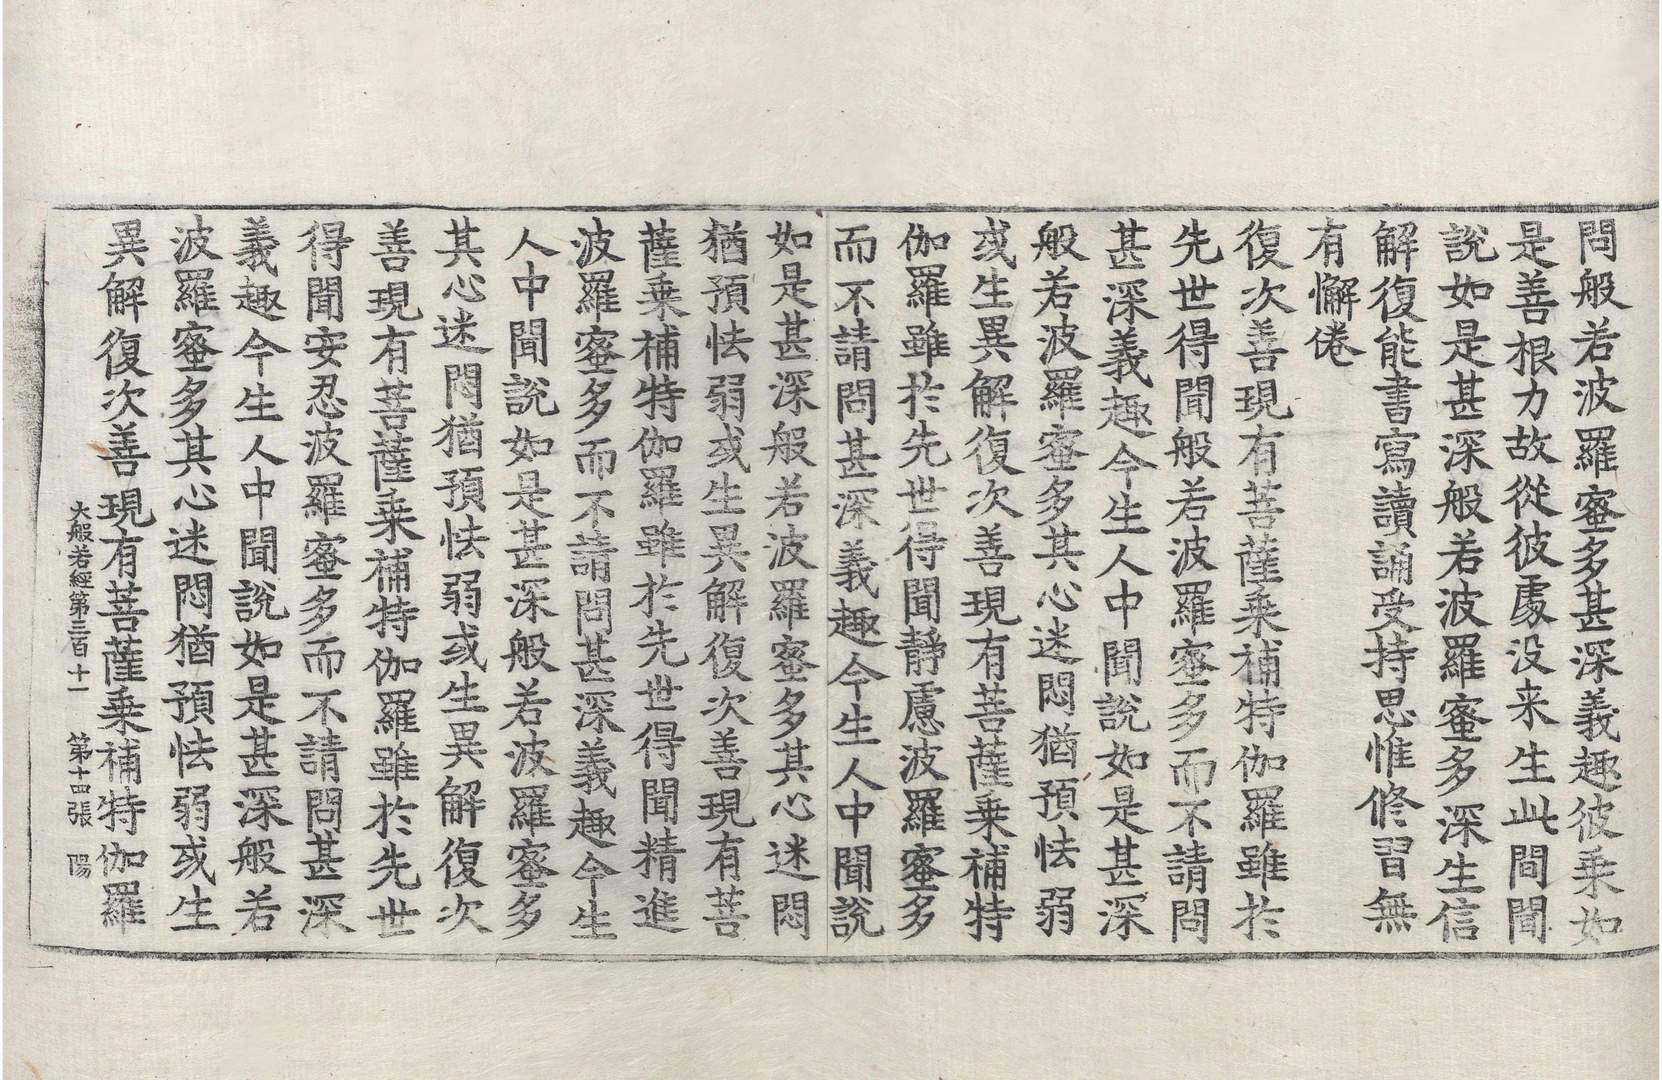 問般若波羅蜜多甚深義趣彼乘如
是善根力故從彼處没来生此間聞
說如是甚深般若波羅蜜多深生信
解復能書寫讀誦受持思惟修習無
有懈倦
復次善現有菩薩乘補特伽羅雖於
先世得聞般若波羅蜜多而不請問
甚深義趣今生人中聞說如是甚深
般若波羅蜜多其心迷悶猶預怯弱
或生異解復次善現有菩薩乘補特
伽羅雖於先世得聞靜慮波羅蜜多
而不請問甚深義趣今生人中聞說
如是甚深般若波羅蜜多其心迷悶
猶預怯弱或生異解復次善現有菩
薩乘補特伽羅雖於先世得聞精進
波羅蜜多而不請問甚深義趣今生
人中聞說如是甚深般若波羅蜜多
其心迷悶猶預怯弱或生異解復次
善現有菩薩乘補特伽羅雖於先世
得聞安忍波羅蜜多而不請問甚深
義趣今生人中聞說如是甚深般若
波羅蜜多其心迷悶猶預怯弱或生
異解復次善現有菩薩乘補特伽羅
大般若經第三百十一 第十四張 陽